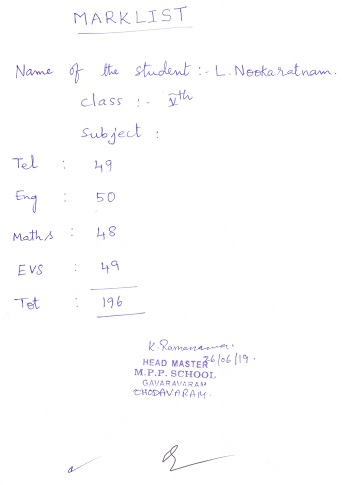 MARKLIST
Name of the student :- L. Nookaratnam.
class :- Vth
Subject :
Tel : 49
Eng : 50
Maths : 48
EVS : 49
Tot : 196
K. Ramanamma.
26/06/19.
HEAD MASTER
M.P.P. SCHOOL
GAVARAVARAM
CHODAVARAM.